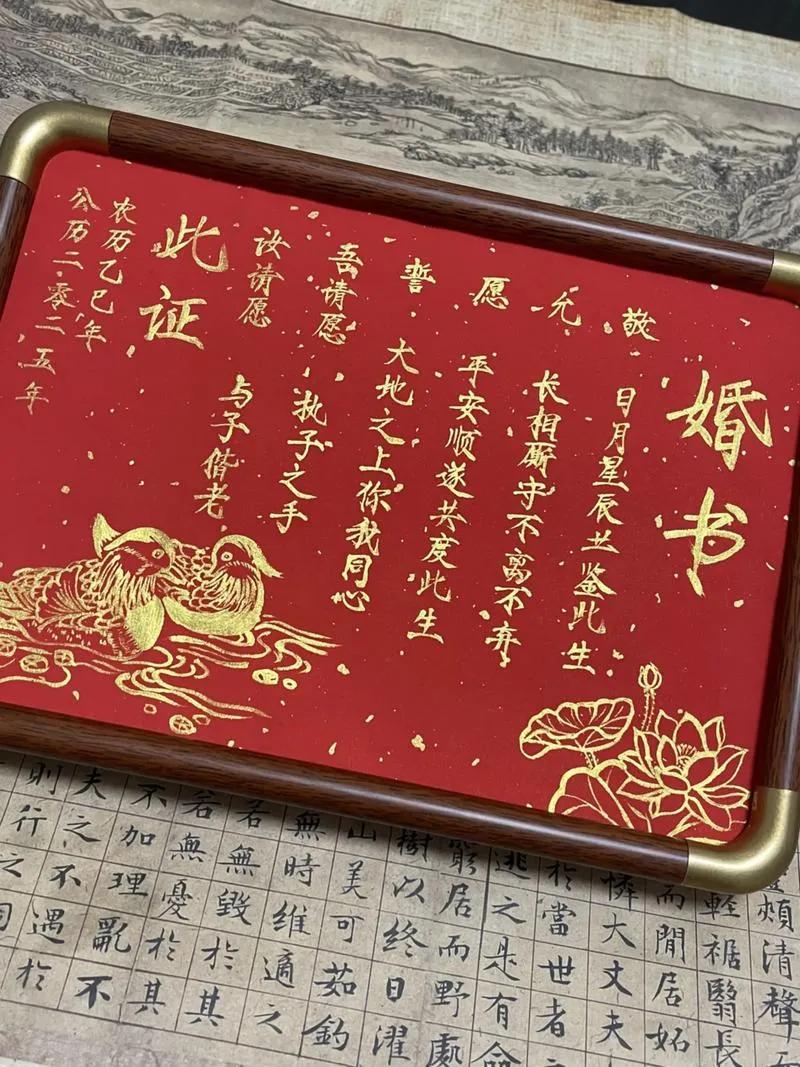 婚书
敬
日月星辰共鉴此生
允
长相厮守不离不弃
愿
平安顺遂共度此生
誓
大地之上你我同心
吾请愿
执子之手
汝请愿
与子偕老
此证
农历乙巳年
公历二零二五年
頰清聲
輕裾翳長
而閒居妬
憐大丈夫
於當世者
逃之是有命
窮居而野處
樹以終日濯
山美可茹釣
無時維適之
名無毀於其
若無憂於其
不加理亂不
夫之不遇於
則行